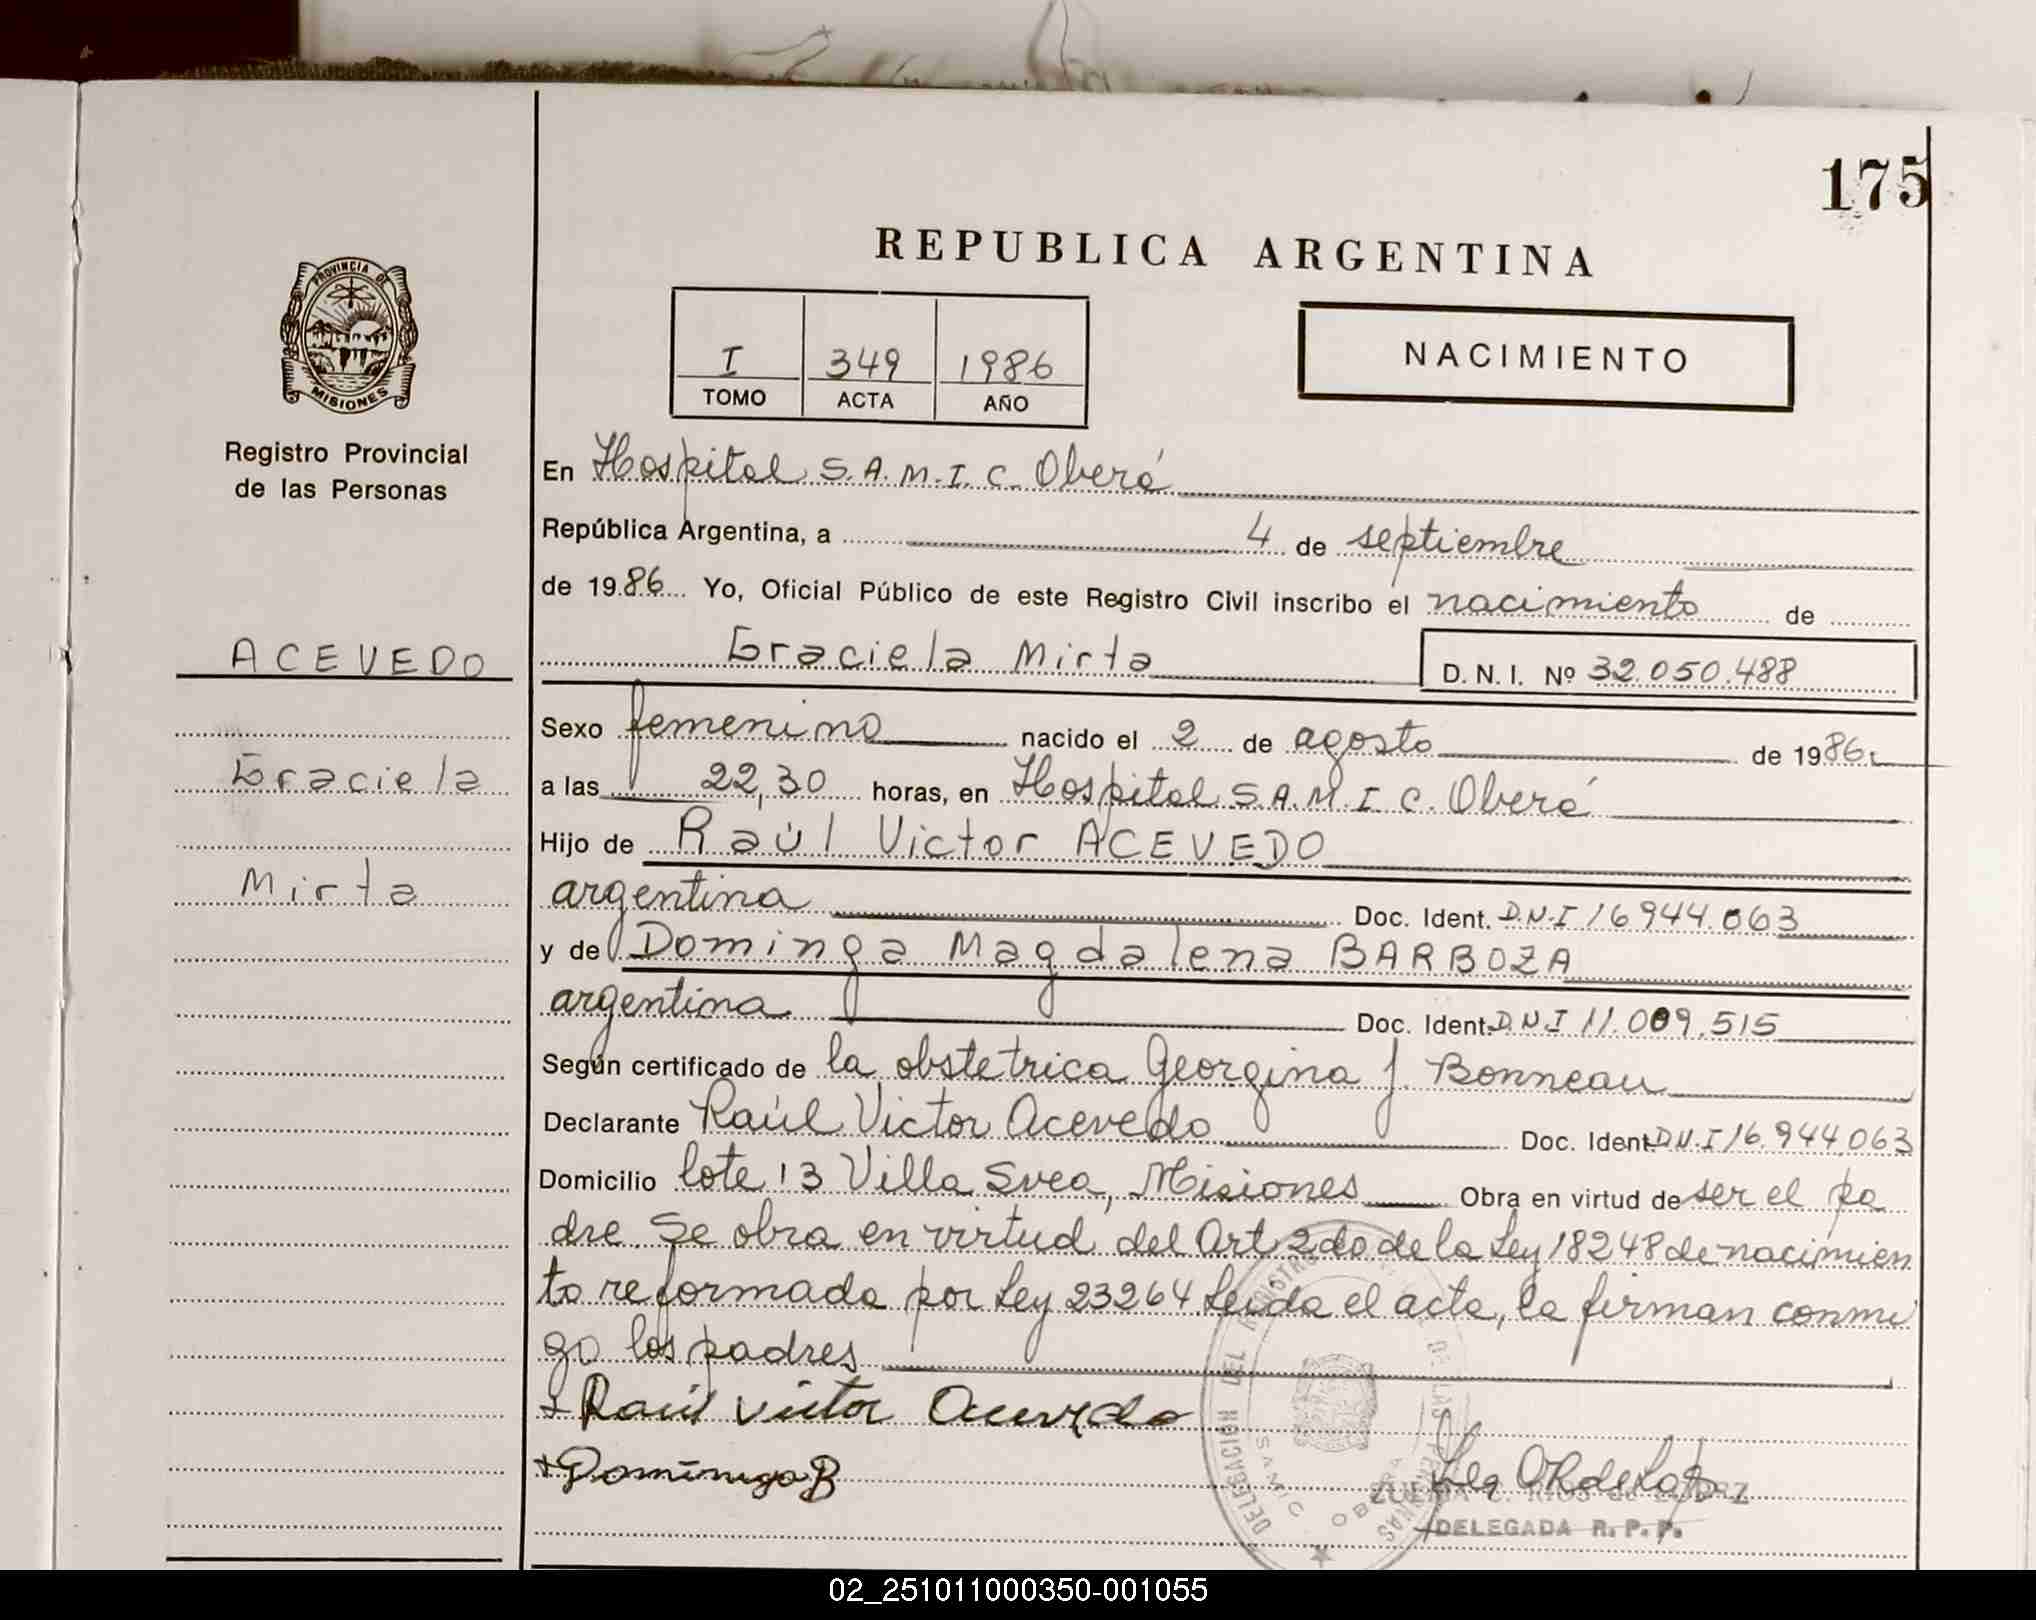 175
REPUBLICA ARGENTINA
PROVINCIA DE
MISIONES
I 349 1986
TOMO ACTA AÑO
NACIMIENTO
Registro Provincial
de las Personas
En Hospital S.A.M.I.C. Oberá
República Argentina, a 4 de septiembre
de 1986 Yo, Oficial Público de este Registro Civil inscribo el nacimiento de
ACEVEDO
Graciela Mirta D. N. I. Nº 32.050.488
Sexo femenino nacido el 2 de agosto de 1986
Graciela
a las 22,30 horas, en Hospital S.A.M.I.C. Oberá
Hijo de Raúl Victor ACEVEDO
Mirta
argentina Doc. Ident. D.N.I 16.944.063
y de Dominga Magdalena BARBOZA
argentina Doc. Ident. D.N.I 11.009.515
Según certificado de la obstetrica Georgina J. Bonneau
Declarante Raúl Victor Acevedo Doc. Ident. D.N.I 16.944.063
Domicilio lote 13 Villa Svea, Misiones Obra en virtud de ser el pa
dre. Se obra en virtud del Art 2do de la Ley 18248 de nacimien
to reformada por Ley 23264 Leida el acta, la firman conmi
go los padres
Raúl Victor Acevedo
Dominga B
DELEGACION DEL REGISTRO DE LAS PERSONAS
SAMIC OBERA
DELEGADA R. P. P.
02_251011000350-001055